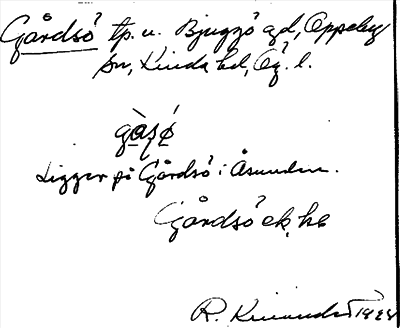 Gårdsö tp. u. Bjuggö gd, Oppeby
sn, Kinda hd, Ög. l.
gàsǿ
Ligger på Gårdsö i Åsunden.
Gårdsö ek. hs
R. 1928